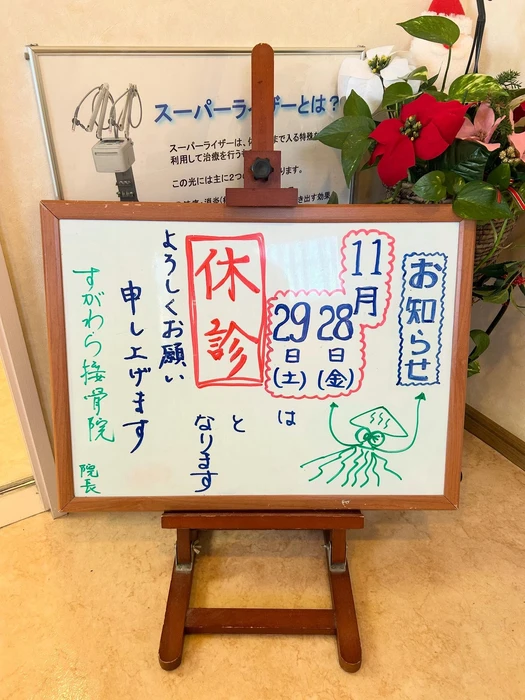 スーパーライザーとは?
スーパーライザーは、
まで入る特殊な
利用して治療を行う
この光には主に2つの
お知らせ
11月
28日(金)
29日(土)
は
休診
と
なります
よろしくお願い
申し上げます
すがわら接骨院
院長